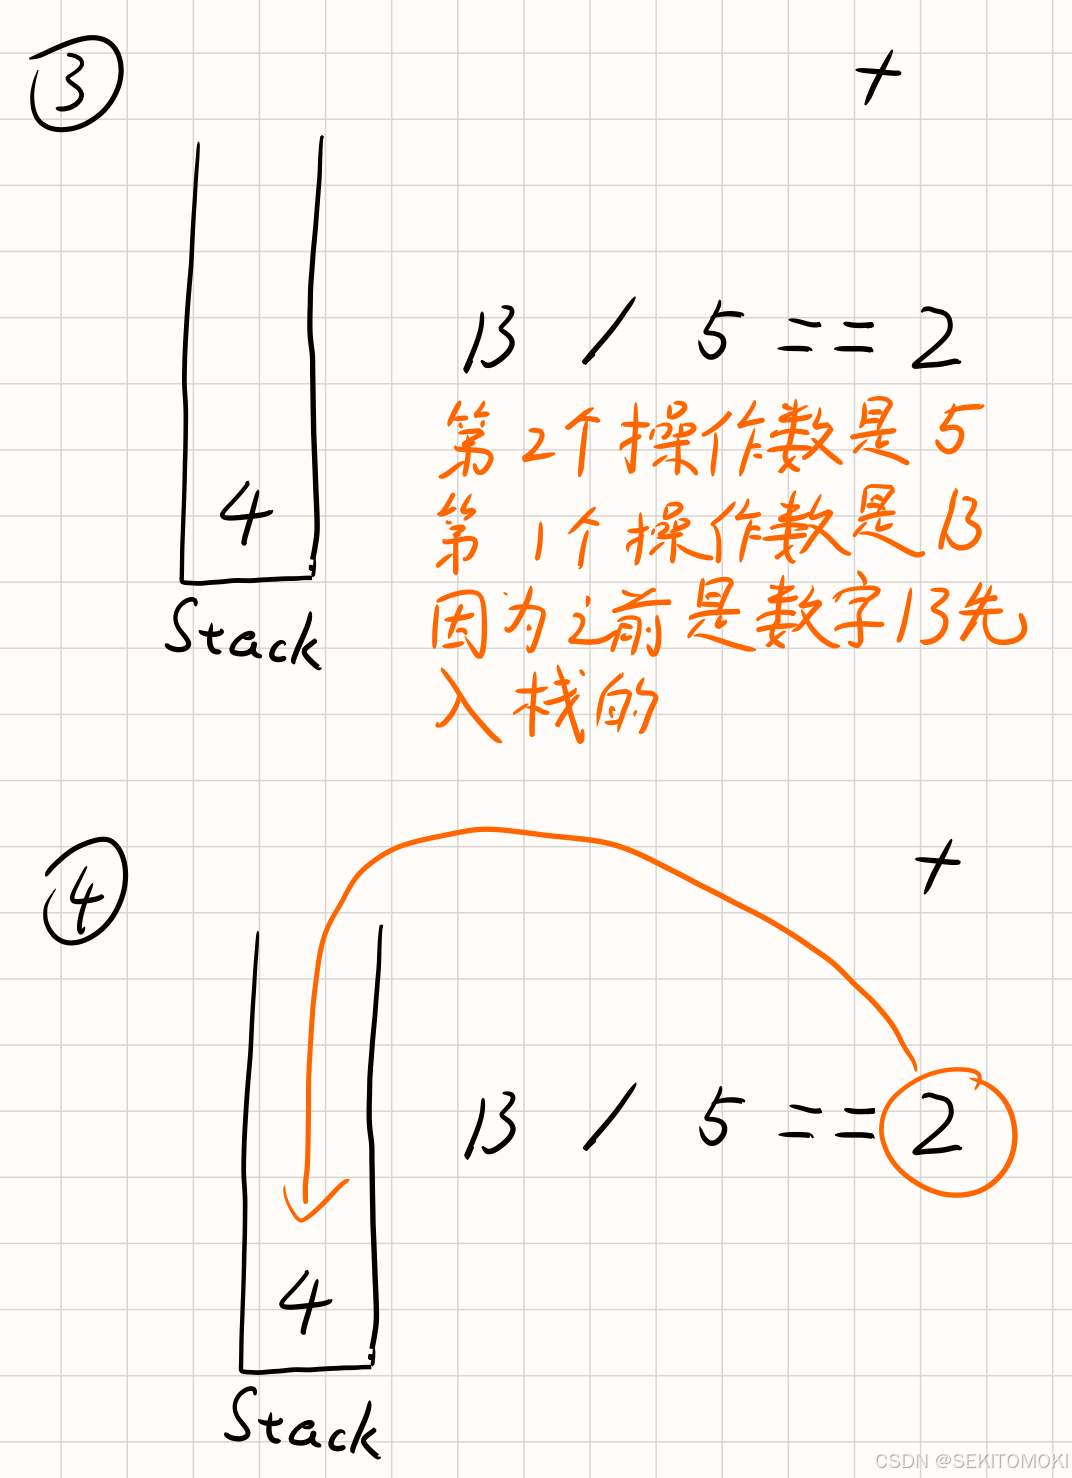 ③
+
13 / 5 == 2
第2个操作数是5
第1个操作数是13
因为之前是数字13先
入栈的
4
Stack
④
+
13 / 5 == 2
4
Stack
CSDN @SEKITOMOKI